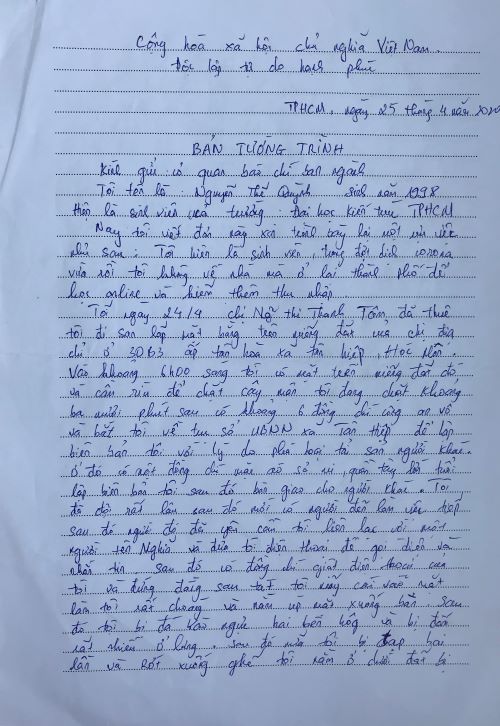 Cộng hoà xã hội chủ nghĩa Việt Nam.
Độc lập tự do hạnh phúc
TPHCM, ngày 25 tháng 4 năm 2020
BẢN TƯỜNG TRÌNH
Kính gửi cơ quan báo chí ban ngành
Tôi tên là Nguyễn Thế Quỳnh sinh năm 1998
Hiện là sinh viên của trường Đại học Kiến trúc TPHCM
Nay tôi viết đơn này xin trình bày lại một sự việc
như sau: Tôi hiện là sinh viên, trong đợt dịch corona
vừa rồi tôi không về nhà mà ở lại thành phố để
học online và kiếm thêm thu nhập
Tới ngày 24/4 chị Ngô Thị Thanh Tâm đã thuê
tôi đi san lấp mặt bằng trên miếng đất của chị địa
chỉ ở ấp tân hoà xã tân hiệp, Hóc Môn.
Vào khoảng 6h00 sáng tôi có mặt trên miếng đất đó
và cầm rìu để chặt cây mận tôi đang chặt khoảng
ba mươi phút sau có khoảng 6 đồng chí công an vô
và bắt tôi về trụ sở UBNN xã Tân Hiệp để lập
biên bản tôi với lý do phá hoại tài sản người khác.
Ở đó có một đồng chí mặc áo sơ mi, quần tây lớn tuổi
lập biên bản tôi sau đó bàn giao cho người khác. Tôi
đã đợi rất lâu sau đó mới có người đến làm việc tiếp
sau đó người đó đã yêu cầu tôi liên lạc với một
người tên Nghĩa và đưa tôi điện thoại để gọi điện và
nhắn tin. sau đó có đồng chí giật điện thoại của
tôi và đứng đằng sau tát tôi mấy cái vào mặt
làm tôi rất choáng và nằm úp mặt xuống bàn. Sau
đó tôi bị đá vào ngực hai bên hông và bị đấm
rất nhiều ở lưng. sau đó nữa tôi bị đạp hai
lần và rớt xuống ghế tôi nằm ở dưới đất bị